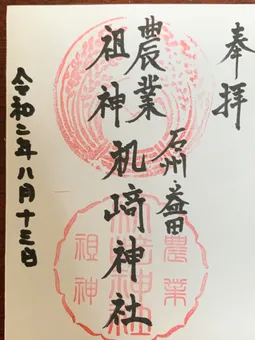 奉拝
石州・益田
農業
祖神
机崎神社
令和二年八月十三日
農業
祖神